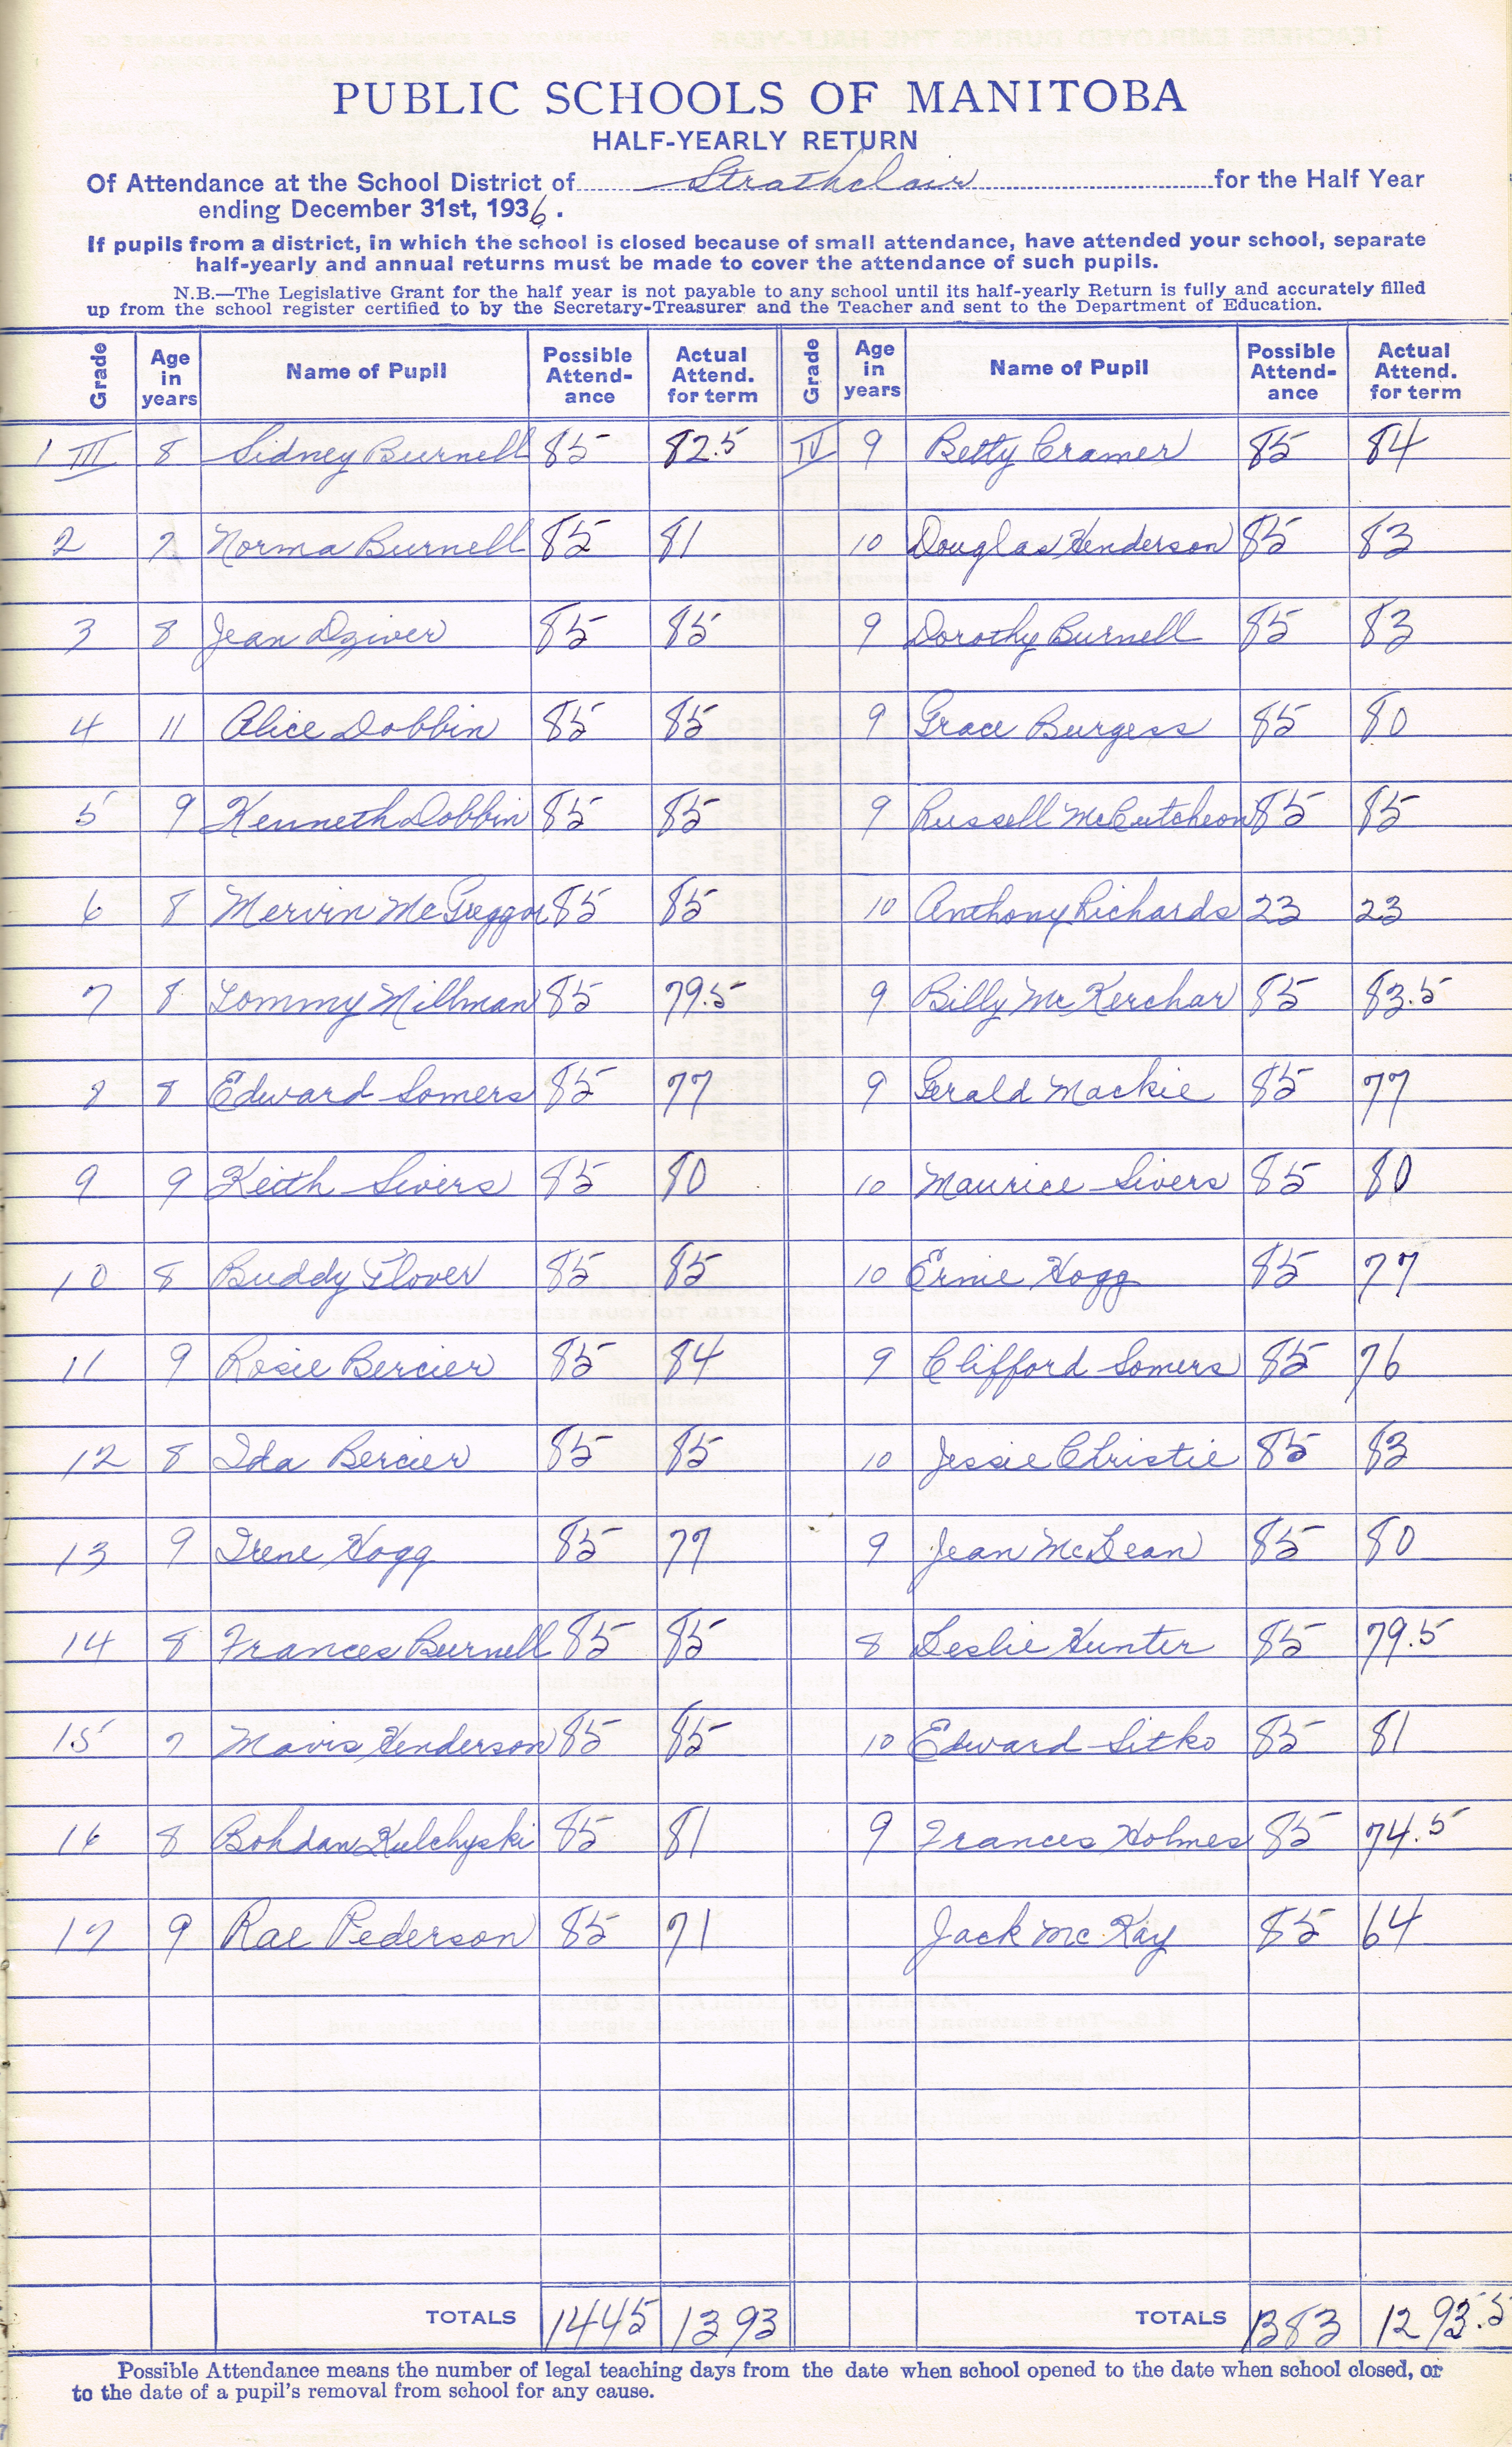 PUBLIC SCHOOLS OF MANITOBA
HALF-YEARLY RETURN
Of Attendance at the School District of Strathclair for the Half Year
ending December 31st, 1936.
If pupils from a district, in which the school is closed because of small attendance, have attended your school, separate
half-yearly and annual returns must be made to cover the attendance of such pupils.
N.B.—The Legislative Grant for the half year is not payable to any school until its half-yearly Return is fully and accurately filled
up from the school register certified to by the Secretary-Treasurer and the Teacher and sent to the Department of Education.
Grade Age in years Name of Pupil Possible Attend-ance Actual Attend. for term Grade Age in years Name of Pupil Possible Attend-ance Actual Attend. for term
1 III 8 Sidney Burnell 85 82.5 IV 9 Betty Cramer 85 84
2 7 Norma Burnell 85 81 10 Douglas Henderson 85 83
3 8 Jean Dziver 85 85 9 Dorothy Burnell 85 83
4 11 Alice Dobbin 85 85 9 Grace Burgess 85 80
5 9 Kenneth Dobbin 85 85 9 Russell McCutcheon 85 85
6 8 Mervin McGreggor 85 85 10 Anthony Richards 23 23
7 8 Tommy Millman 85 79.5 9 Billy McKerchar 85 83.5
8 8 Edward Somers 85 77 9 Gerald Mackie 85 77
9 9 Keith Sivers 85 80 10 Maurice Sivers 85 80
10 8 Buddy Glover 85 85 10 Ernie Hogg 85 77
11 9 Rosie Bercier 85 84 9 Clifford Somers 85 76
12 8 Ida Bercier 85 85 10 Jessie Christie 85 83
13 9 Irene Hogg 85 77 9 Jean McLean 85 80
14 8 Frances Burnell 85 85 8 Leslie Hunter 85 79.5
15 7 Mavis Henderson 85 85 10 Edward Sitko 85 81
16 8 Bohdan Kulchyski 85 81 9 Frances Holmes 85 74.5
17 9 Rae Pederson 85 71 Jack McKay 85 64
TOTALS 1445 1393 TOTALS 1383 1293.5
Possible Attendance means the number of legal teaching days from the date when school opened to the date when school closed, or
to the date of a pupil's removal from school for any cause.